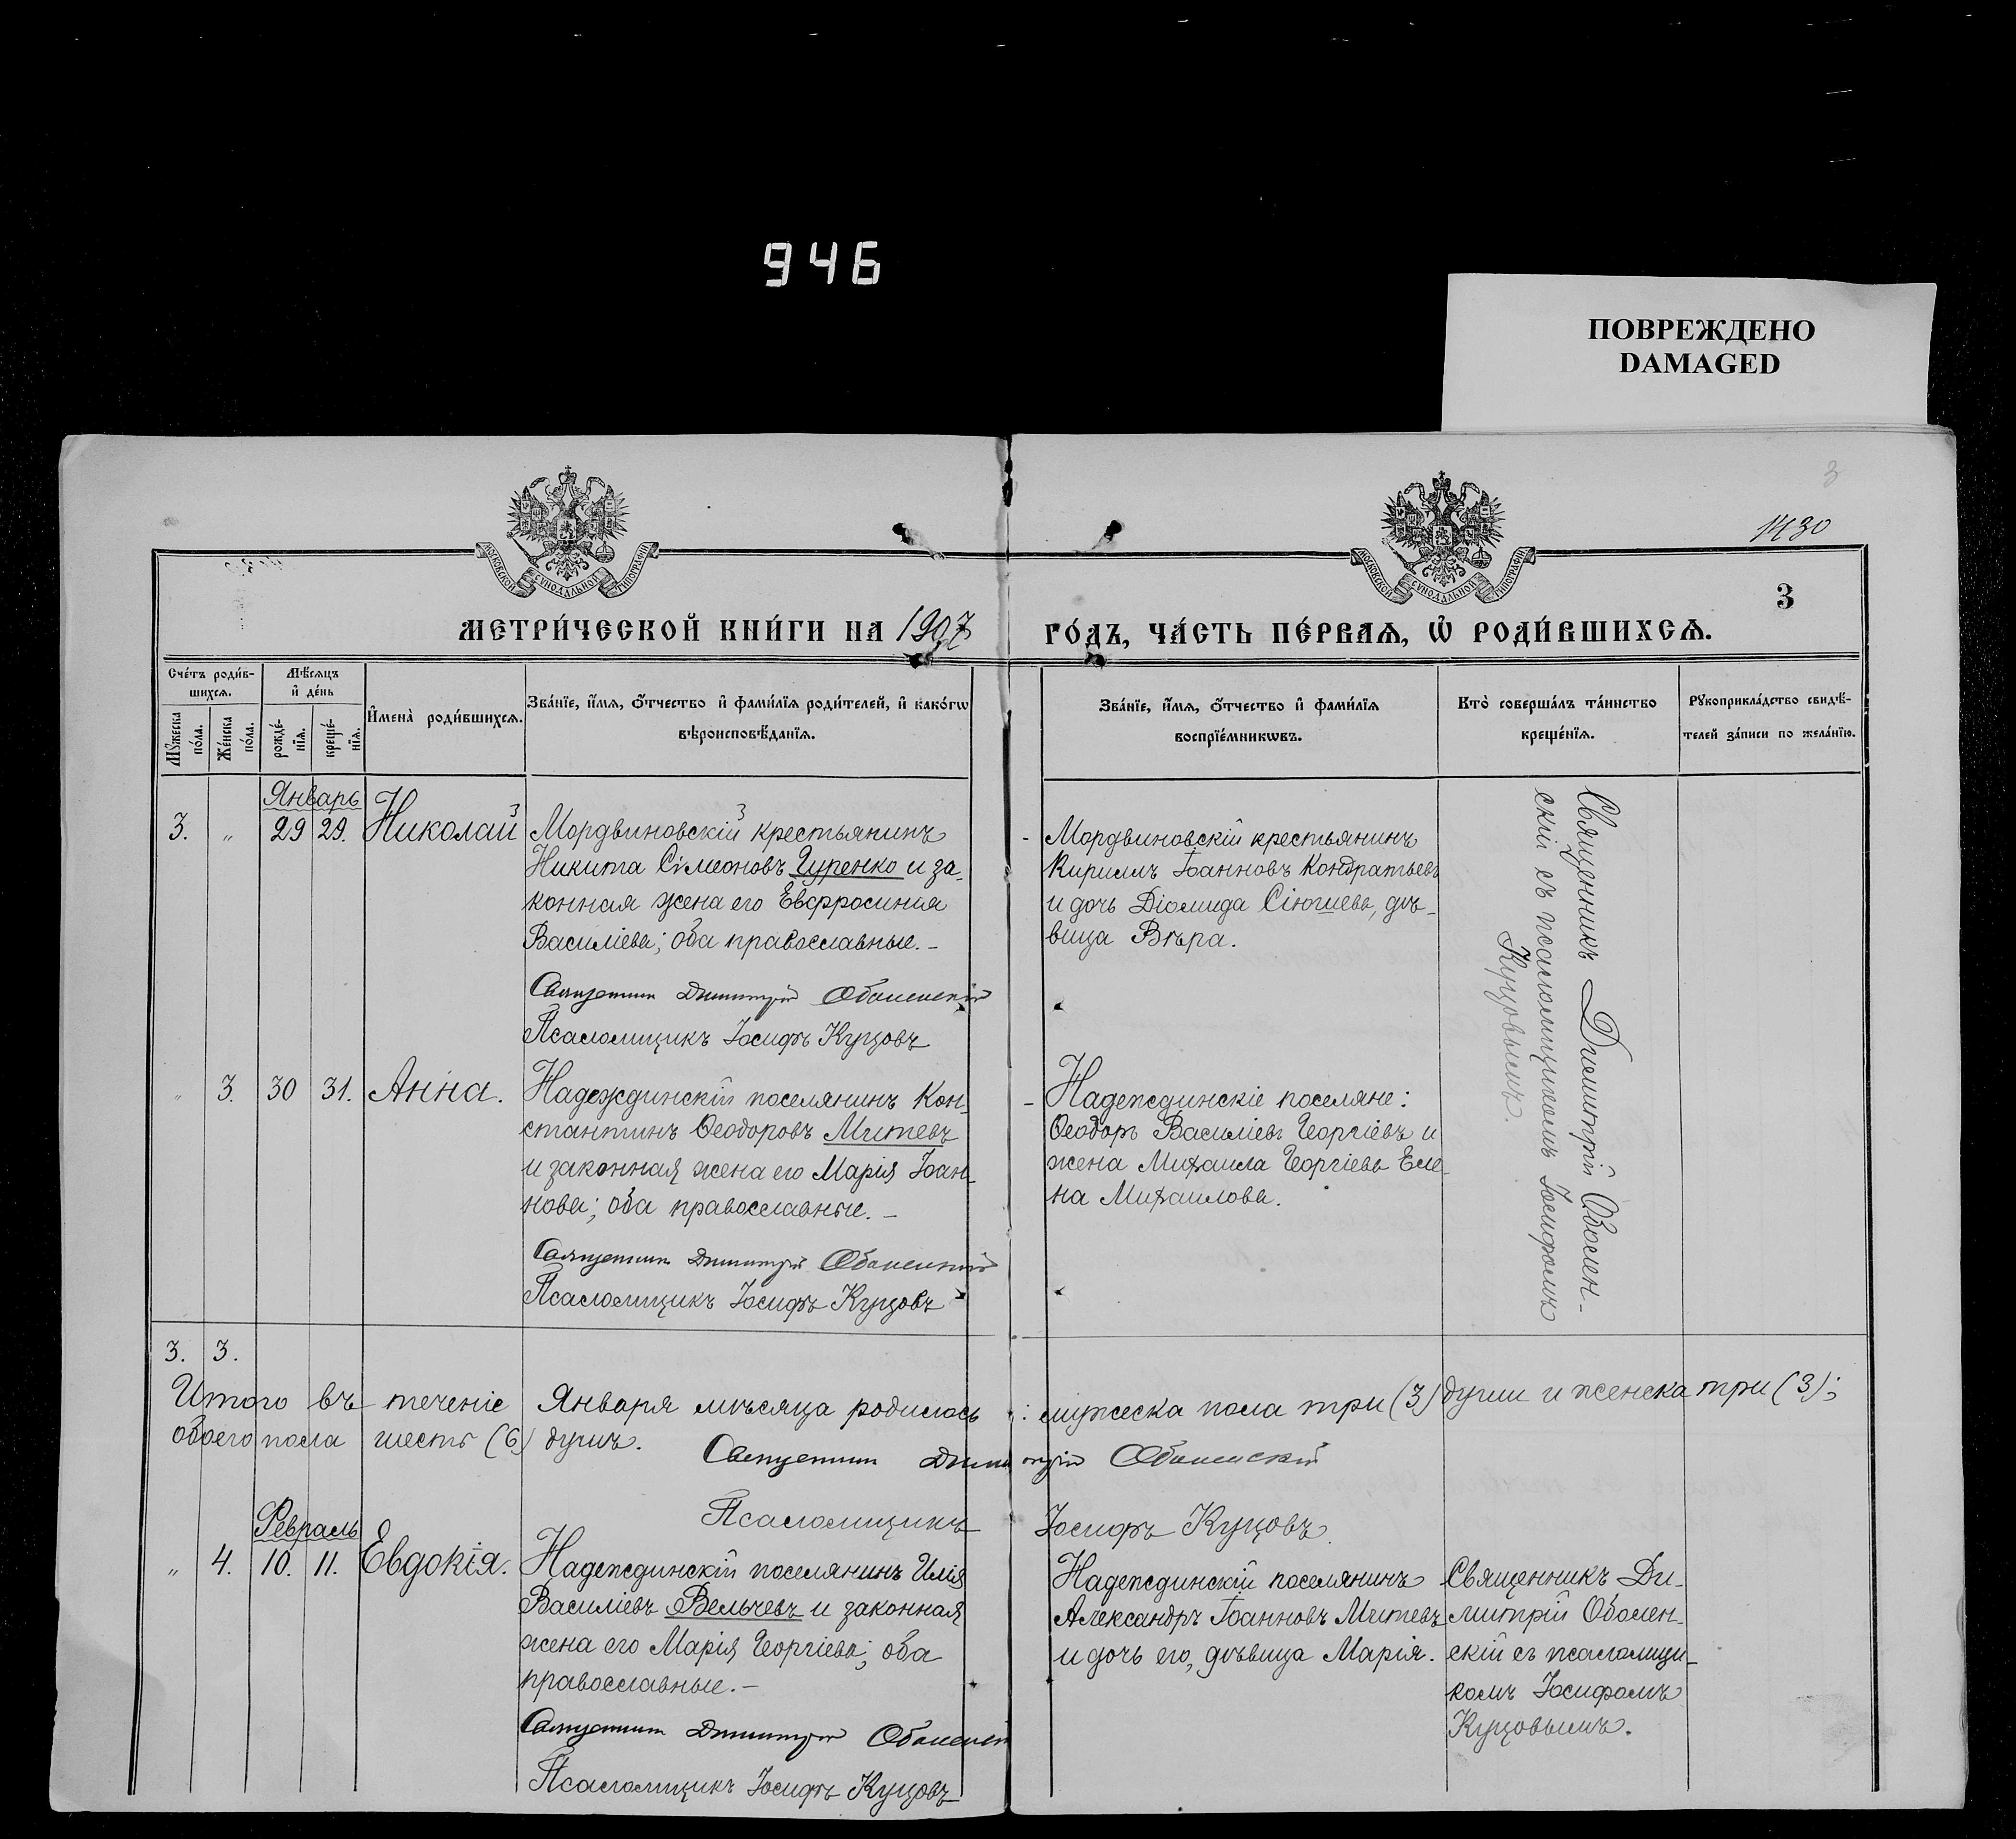 946
ПОВРЕЖДЕНО
DAMAGED
3
1430
МОСКОВСКОЙ СѴНОДАЛЬНОЙ ТИПОГРАФІИ
МОСКОВСКОЙ СѴНОДАЛЬНОЙ ТИПОГРАФІИ
3
МЕТРИ́ЧЕСКОЙ КНИ́ГИ НА 1907 ГО́ДЪ, ЧА́СТЬ ПЕ́РВАѦ, Ѽ РОДИ́ВШИХСѦ.
Сче́тъ роди́в-
шихсѧ.
Мѣ́сѧцъ
и҆ де́нь
Мꙋ́жеска
по́ла.
Же́нска
по́ла.
рожде́-
нїѧ.
креще́-
нїѧ.
И҆мена̀ роди́вшихсѧ.
Зва́нїе, и҆́мѧ, о҆́тчество и҆ фами́лїѧ роди́телей, и҆ како́гѡ
вѣроисповѣ́данїѧ.
Зва́нїе, и҆́мѧ, о҆́тчество и҆ фами́лїѧ
воспрїе́мникѡвъ.
Кто̀ соверша́лъ та́инство
креще́нїѧ.
Рꙋкоприкла́дство свидѣ́-
телей за́писи по жела́нїю.
Январь
3. „ 29 29. Николай
Мордвиновскій крестьянинъ
Никита Сімеоновъ Гуренко и за-
конная жена его Евфросинія
Василіева; оба православные.-
Священникъ Димитрій Оболенскій
Псаломщикъ Іосифъ Куцовъ
- Мордвиновскій крестьянинъ
Кириллъ Іоанновъ Кондратьевъ
и дочь Діомида , дѣ-
вица Вѣра.
Священникъ Димитрій Оболен-
скій съ псаломщикомъ Іосифомъ
Куцовымъ.
„ 3. 30 31. Анна.
Надеждинскій поселянинъ Кон-
стантинъ Ѳеодоровъ Митевъ
и законная жена его Марія Іоан-
нова; оба православные.-
Священникъ Димитрій Оболенскій
Псаломщикъ Іосифъ Куцовъ
- Надеждинскіе поселяне:
Ѳеодоръ Василіевъ Георгіевъ и
жена Михаила Георгіева Еле-
на Михаилова.
3. 3.
Итого въ теченіе Января мѣсяца родилось: мужеска пола три (3) души и женска три (3);
обоего пола шесть (6) душъ.
Священникъ Димитрій Оболенскій
Псаломщикъ Іосифъ Куцовъ.
Февраль
„ 4. 10. 11. Евдокія.
Надеждинскій поселянинъ Илія
Василіевъ Вельчевъ и законная
жена его Марія Георгіева; оба
православные.-
Священникъ Димитрій Оболенскій
Псаломщикъ Іосифъ Куцовъ
Надеждинскій поселянинъ
Александръ Іоанновъ Митевъ
и дочь его, дѣвица Марія.
Священникъ Ди-
митрій Оболен-
скій съ псаломщи-
комъ Іосифомъ
Куцовымъ.